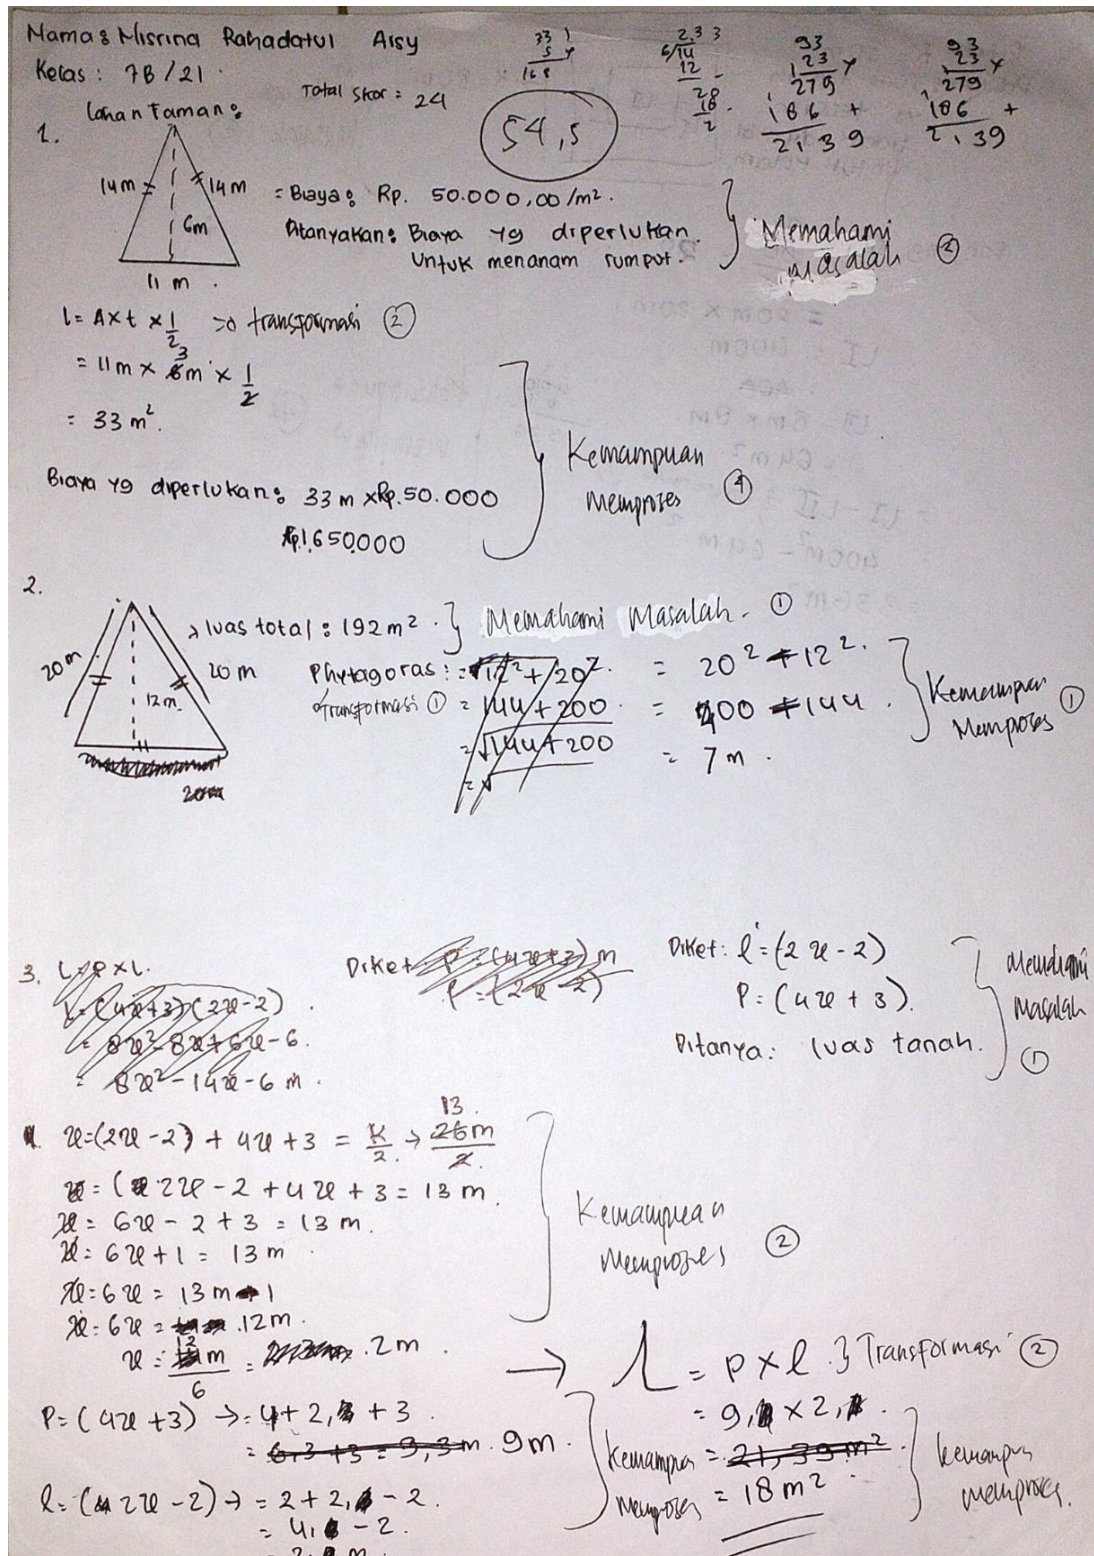 Nama : Misrina Rahadatul Aisy
Kelas : 7B/21
Total Skor = 24
54,5
33 1
5 x
168
2,33
6/14
12 -
20
18 -
2
93
23 x
279
186 +
2139
93
23 x
279
186 +
2,39
Lahan Taman :
1.
14m
14m
6m
11 m
= Biaya : Rp. 50.000,00/m².
Ditanyakan : Biaya yg diperlukan
untuk menanam rumput.
Memahami
masalah ②
l = A x t x 1/2 => transformasi ②
= 11m x 6m x 1/2
3
= 33 m².
Biaya yg diperlukan : 33 m x Rp. 50.000
Rp. 1.650.000
Kemampuan
Memproses ④
2.
20m
20 m
12m
luas total : 192 m².
Memahami Masalah. ①
Phytagoras : = √12² + 20²
transformasi ①
= 144 + 200
= √144 + 200
= √
= 20² - 12².
= 400 - 144.
= 7 m.
Kemampuan
Memproses ①
3. L = p x l.
L = (4x+3)(2x-2)
= 8x² - 8x + 6x - 6.
= 8x² - 14x - 6 m.
Diket P = (4x+3) m
l = (2x-2)
Diket : l = (2x-2)
P = (4x + 3).
Ditanya : luas tanah.
Memahami
Masalah
①
x = (2x-2) + 4x + 3 = K/2 → 26m/2
13.
x = (2x - 2 + 4x + 3 = 13 m.
x = 6x - 2 + 3 = 13 m.
x = 6x + 1 = 13 m
x = 6x = 13 m - 1
x = 6x = 12m.
x = 12 m/6 = 2 m.
Kemampuan
Memproses ②
P = (4x + 3) → = 4 + 2, + 3.
= 6,3 + 3 = 9,3 m. 9m.
l = (2x - 2) → = 2 + 2, - 2.
= 4, - 2.
Kemampuan
Memproses
→ L = p x l. } Transformasi ②
= 9, x 2,
= 21,39 m²
= 18 m²
kemampuan
memproses.